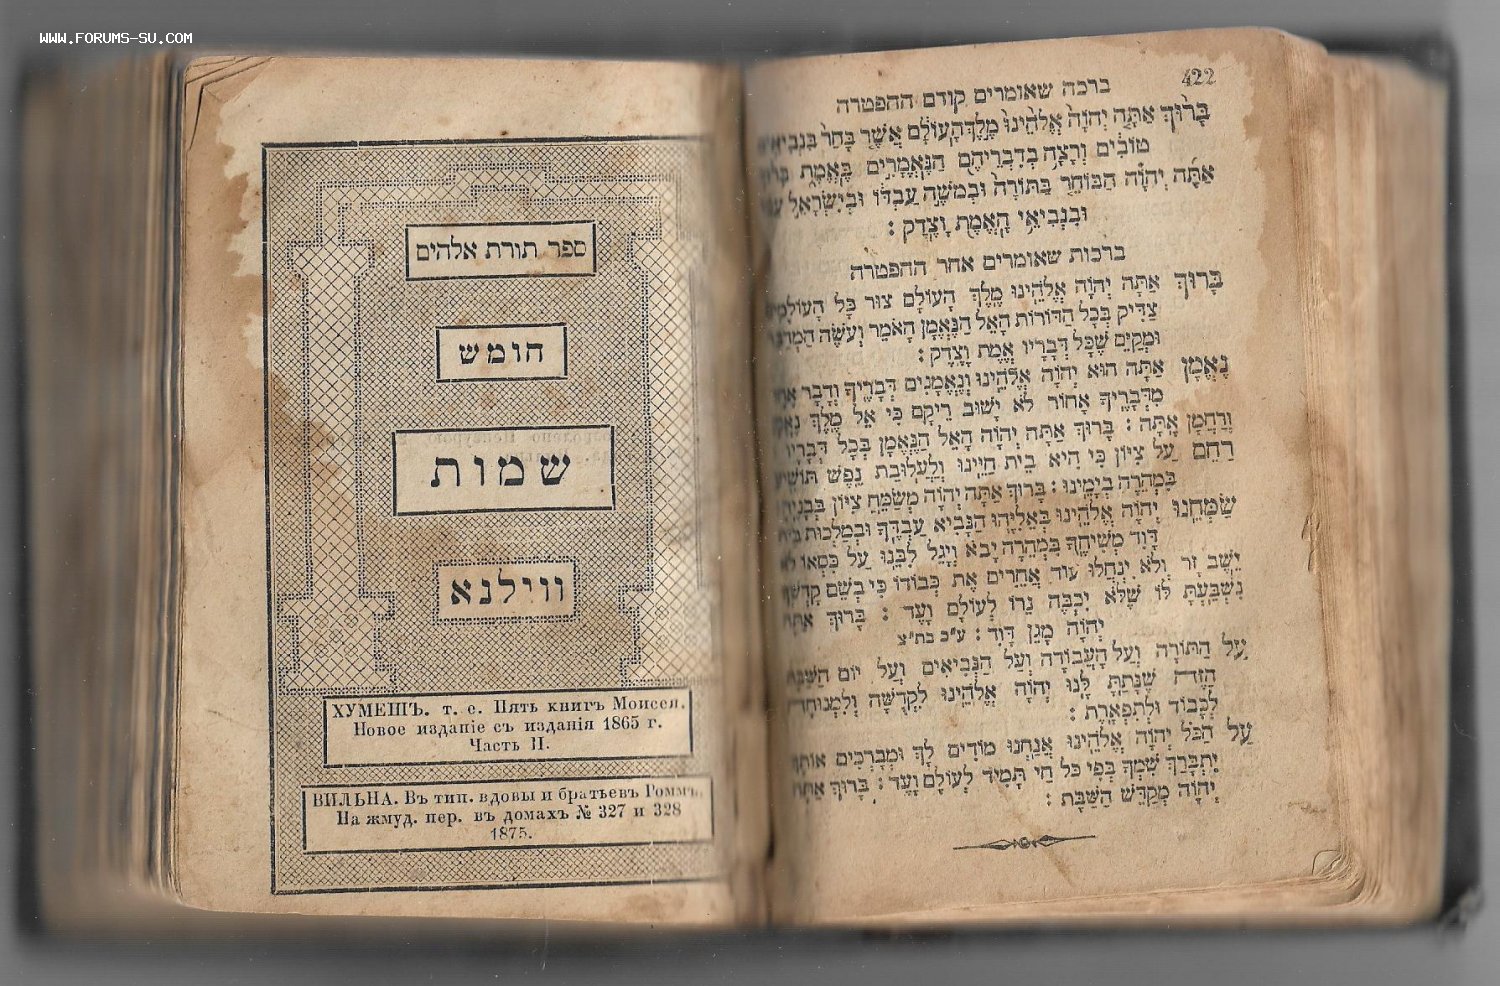 WWW.FORUMS-SU.COM
422
ברכה שאומרים קודם ההפטרה
בָּרוּךְ אַתָּה יְהוָה אֱלֹהֵינוּ מֶלֶךְ הָעוֹלָם אֲשֶׁר בָּחַר בִּנְבִיאִים
טוֹבִים וְרָצָה בְדִבְרֵיהֶם הַנֶּאֱמָרִים בֶּאֱמֶת בָּרוּךְ
אַתָּה יְהוָה הַבּוֹחֵר בַּתּוֹרָה וּבְמֹשֶׁה עַבְדּוֹ וּבְיִשְׂרָאֵל עַמּוֹ
וּבִנְבִיאֵי הָאֱמֶת וָצֶדֶק :
ברכות שאומרים אחר ההפטרה
בָּרוּךְ אַתָּה יְהוָה אֱלֹהֵינוּ מֶלֶךְ הָעוֹלָם צוּר כָּל הָעוֹלָמִים
צַדִּיק בְּכָל הַדּוֹרוֹת הָאֵל הַנֶּאֱמָן הָאֹמֵר וְעֹשֶׂה הַמְדַבֵּר
וּמְקַיֵּם שֶׁכָּל דְּבָרָיו אֱמֶת וָצֶדֶק :
נֶאֱמָן אַתָּה הוּא יְהוָה אֱלֹהֵינוּ וְנֶאֱמָנִים דְּבָרֶיךָ וְדָבָר אֶחָד
מִדְּבָרֶיךָ אָחוֹר לֹא יָשׁוּב רֵיקָם כִּי אֵל מֶלֶךְ נֶאֱמָן
וְרַחֲמָן אָתָּה : בָּרוּךְ אַתָּה יְהוָה הָאֵל הַנֶּאֱמָן בְּכָל דְּבָרָיו :
רַחֵם עַל צִיּוֹן כִּי הִיא בֵּית חַיֵּינוּ וְלַעֲלוּבַת נֶפֶשׁ תּוֹשִׁיעַ
בִּמְהֵרָה בְיָמֵינוּ : בָּרוּךְ אַתָּה יְהוָה מְשַׂמֵּחַ צִיּוֹן בְּבָנֶיהָ :
שַׂמְּחֵנוּ יְהוָה אֱלֹהֵינוּ בְּאֵלִיָּהוּ הַנָּבִיא עַבְדֶּךָ וּבְמַלְכוּת בֵּית
דָּוִד מְשִׁיחֶךָ בִּמְהֵרָה יָבֹא וְיָגֵל לִבֵּנוּ עַל כִּסְאוֹ לֹא
יֵשֵׁב זָר וְלֹא יִנְחֲלוּ עוֹד אֲחֵרִים אֶת כְּבוֹדוֹ כִּי בְשֵׁם קָדְשְׁךָ
נִשְׁבַּעְתָּ לּוֹ שֶׁלֹּא יִכְבֶּה נֵרוֹ לְעוֹלָם וָעֶד : בָּרוּךְ אַתָּה
יְהוָה מָגֵן דָּוִד : ע"כ בת"צ
עַל הַתּוֹרָה וְעַל הָעֲבוֹדָה וְעַל הַנְּבִיאִים וְעַל יוֹם הַשַּׁבָּת
הַזֶּה שֶׁנָּתַתָּ לָּנוּ יְהוָה אֱלֹהֵינוּ לִקְדֻשָּׁה וְלִמְנוּחָה
לְכָבוֹד וּלְתִפְאָרֶת :
עַל הַכֹּל יְהוָה אֱלֹהֵינוּ אֲנַחְנוּ מוֹדִים לָךְ וּמְבָרְכִים אוֹתָךְ
יִתְבָּרַךְ שִׁמְךָ בְּפִי כָּל חַי תָּמִיד לְעוֹלָם וָעֶד : בָּרוּךְ אַתָּה
יְהוָה מְקַדֵּשׁ הַשַּׁבָּת :
ספר תורת אלהים
חומש
שמות
ווילנא
ХУМЕШЪ. т. е. Пять книгъ Моисея.
Новое изданіе съ изданія 1865 г.
Часть II.
ВИЛЬНА. Въ тип. вдовы и братьевъ Роммъ.
На жмуд. пер. въ домахъ № 327 и 328
1875.